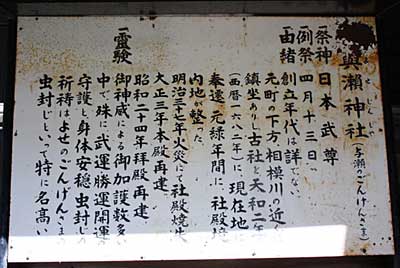 與瀨神社(与瀬のごんげんさま)
よせじんじゃ
一祭神 日本武尊
一例祭 四月十三日
一由緒 創立年代は詳でない
元町の下方、相模川の近く
鎮坐ありし古社と天和二年
(西暦一六八二年)に、現在地に
奉遷、元緑年間に、社殿境
内地が整った
明治三十七年火災にて社殿焼失
大正三年本殿再建、
昭和二十四年拝殿再建、
一靈驗 御神威による御加護数多い
中で殊に武運勝運開運
守護と身体安穏虫封じの
祈祷はよせのごんげんさまの
虫封じといって特に名高い